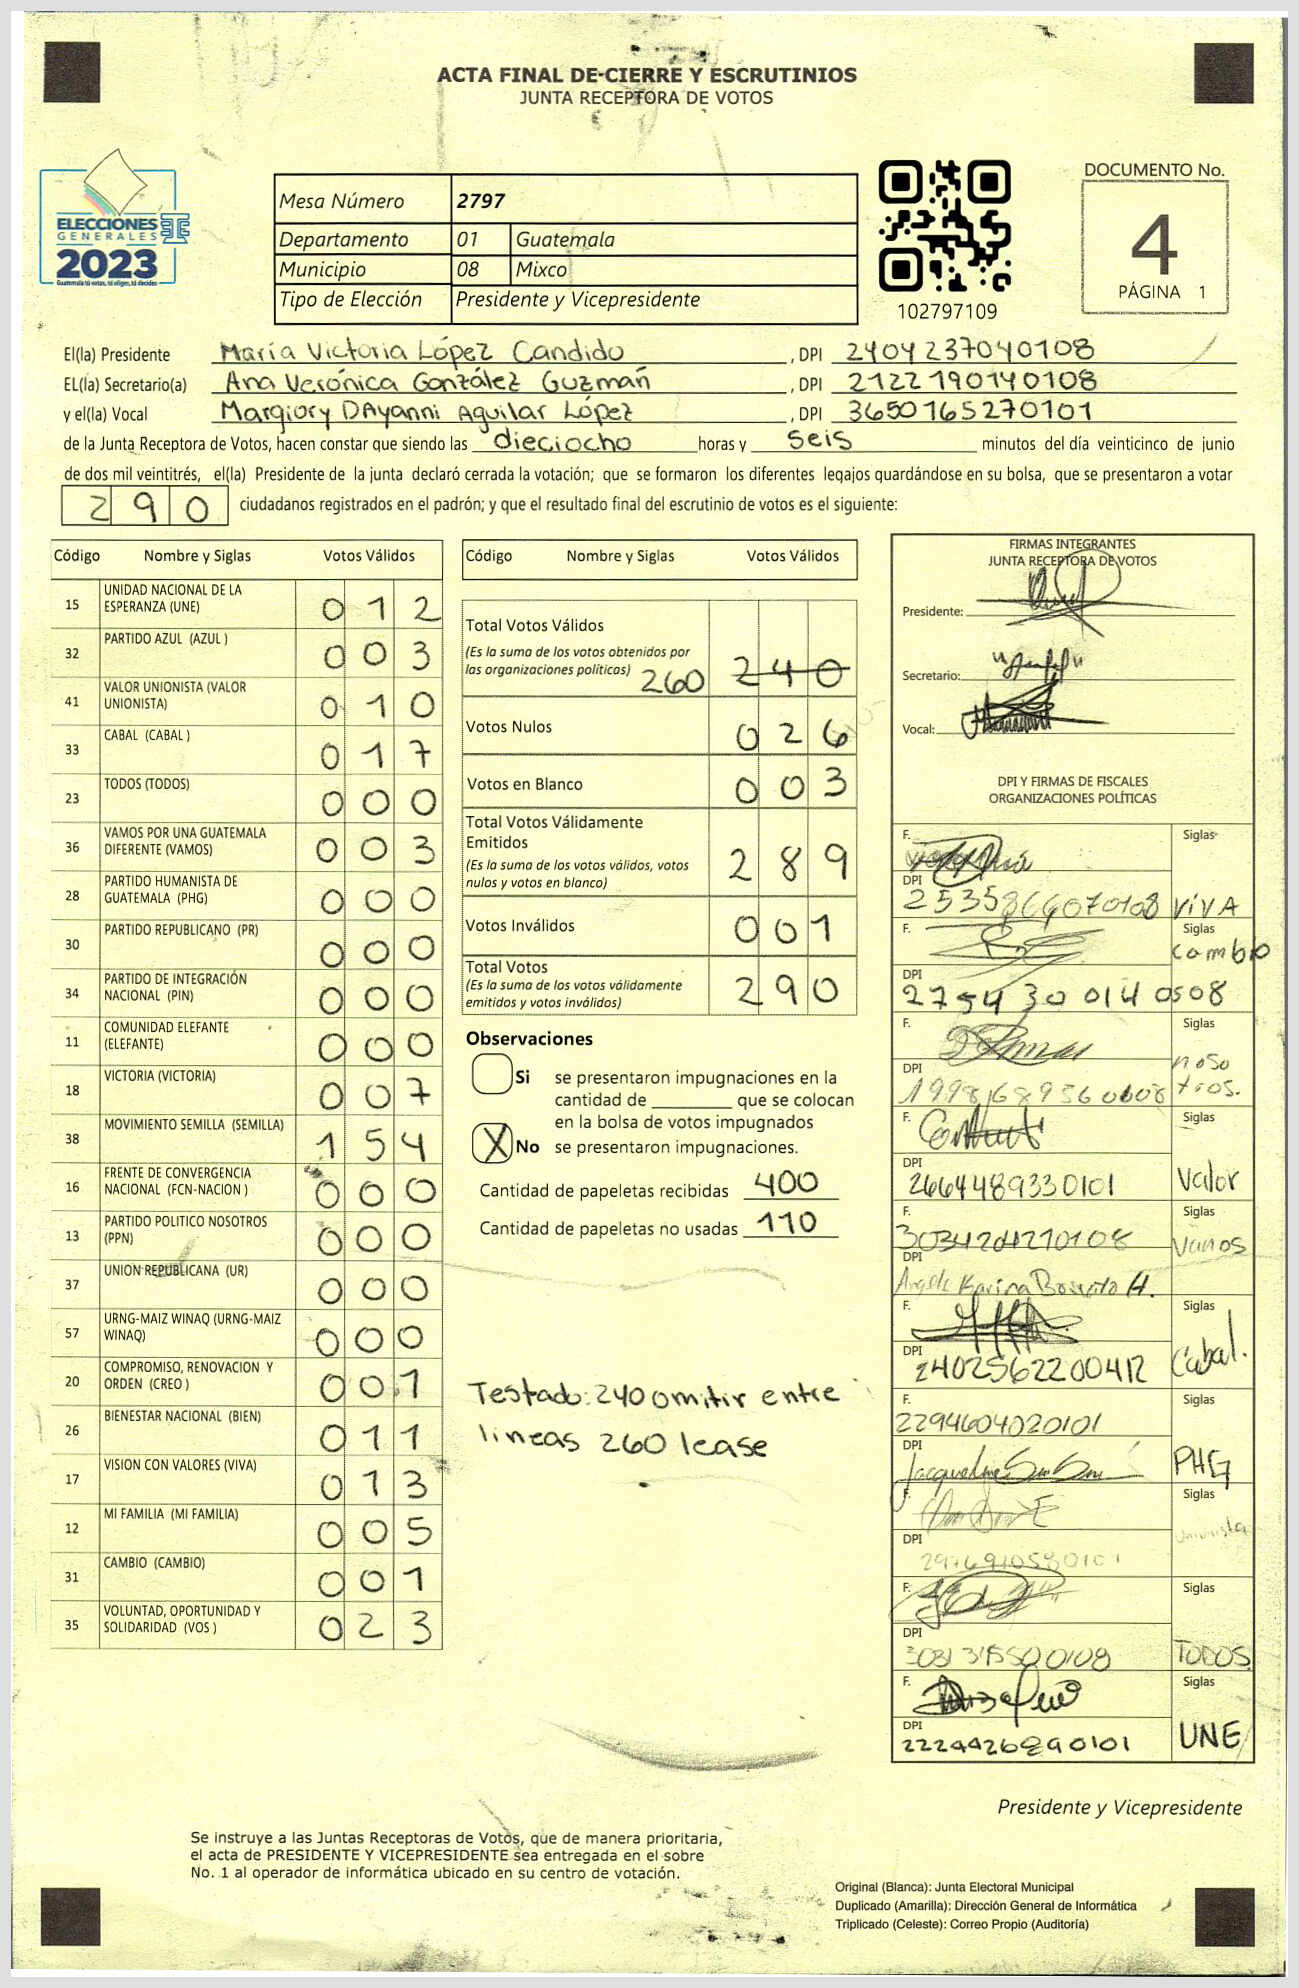 ACTA FINAL DE CIERRE Y ESCRUTINIOS
JUNTA RECEPTORA DE VOTOS
ELECCIONES
GENERALES
2023
Guatemala tú votas, tú eliges, tú decides
Mesa Número 2797
Departamento 01 Guatemala
Municipio 08 Mixco
Tipo de Elección Presidente y Vicepresidente
102797109
DOCUMENTO No.
4
PÁGINA 1
El(la) Presidente María Victoria López Candido , DPI 2404237040108
EL(la) Secretario(a) Ana Verónica González Guzmán , DPI 2122190140108
y el(la) Vocal Margiory DAyanni Aguilar López , DPI 3650165270101
de la Junta Receptora de Votos, hacen constar que siendo las dieciocho horas y seis minutos del día veinticinco de junio
de dos mil veintitrés, el(la) Presidente de la junta declaró cerrada la votación; que se formaron los diferentes legajos guardándose en su bolsa, que se presentaron a votar
290 ciudadanos registrados en el padrón; y que el resultado final del escrutinio de votos es el siguiente:
Código Nombre y Siglas Votos Válidos
15 UNIDAD NACIONAL DE LA ESPERANZA (UNE) 012
32 PARTIDO AZUL (AZUL ) 003
41 VALOR UNIONISTA (VALOR UNIONISTA) 010
33 CABAL (CABAL ) 017
23 TODOS (TODOS) 000
36 VAMOS POR UNA GUATEMALA DIFERENTE (VAMOS) 003
28 PARTIDO HUMANISTA DE GUATEMALA (PHG) 000
30 PARTIDO REPUBLICANO (PR) 000
34 PARTIDO DE INTEGRACIÓN NACIONAL (PIN) 000
11 COMUNIDAD ELEFANTE (ELEFANTE) 000
18 VICTORIA (VICTORIA) 007
38 MOVIMIENTO SEMILLA (SEMILLA) 154
16 FRENTE DE CONVERGENCIA NACIONAL (FCN-NACION ) 000
13 PARTIDO POLITICO NOSOTROS (PPN) 000
37 UNION REPUBLICANA (UR) 000
57 URNG-MAIZ WINAQ (URNG-MAIZ WINAQ) 000
20 COMPROMISO, RENOVACION Y ORDEN (CREO ) 001
26 BIENESTAR NACIONAL (BIEN) 011
17 VISION CON VALORES (VIVA) 013
12 MI FAMILIA (MI FAMILIA) 005
31 CAMBIO (CAMBIO) 001
35 VOLUNTAD, OPORTUNIDAD Y SOLIDARIDAD (VOS ) 023
Código Nombre y Siglas Votos Válidos
Total Votos Válidos
(Es la suma de los votos obtenidos por
las organizaciones políticas) 260 240
Votos Nulos 026
Votos en Blanco 003
Total Votos Válidamente
Emitidos
(Es la suma de los votos válidos, votos
nulos y votos en blanco) 289
Votos Inválidos 001
Total Votos
(Es la suma de los votos válidamente
emitidos y votos inválidos) 290
Observaciones
Si se presentaron impugnaciones en la
cantidad de ________ que se colocan
en la bolsa de votos impugnados
X No se presentaron impugnaciones.
Cantidad de papeletas recibidas 400
Cantidad de papeletas no usadas 110
Testado: 240 omitir entre
lineas 260 lease
FIRMAS INTEGRANTES
JUNTA RECEPTORA DE VOTOS
Presidente:
Secretario:
Vocal:
DPI Y FIRMAS DE FISCALES
ORGANIZACIONES POLÍTICAS
F. Siglas
DPI
2535866070108 VIVA
F. Siglas
cambio
DPI
2754 30 014 0508
F. Siglas
noso
tros.
DPI
F. Siglas
DPI
2664489330101 Valor
F. Siglas
Vamos
DPI
F. Siglas
DPI
2402562200412 Cabal.
Siglas
2294604020101
DPI
PHG
F. Siglas
DPI
F. Siglas
DPI
TODOS
F. Siglas
DPI
UNE
Presidente y Vicepresidente
Se instruye a las Juntas Receptoras de Votos, que de manera prioritaria,
el acta de PRESIDENTE Y VICEPRESIDENTE sea entregada en el sobre
No. 1 al operador de informática ubicado en su centro de votación.
Original (Blanca): Junta Electoral Municipal
Duplicado (Amarilla): Dirección General de Informática
Triplicado (Celeste): Correo Propio (Auditoría)